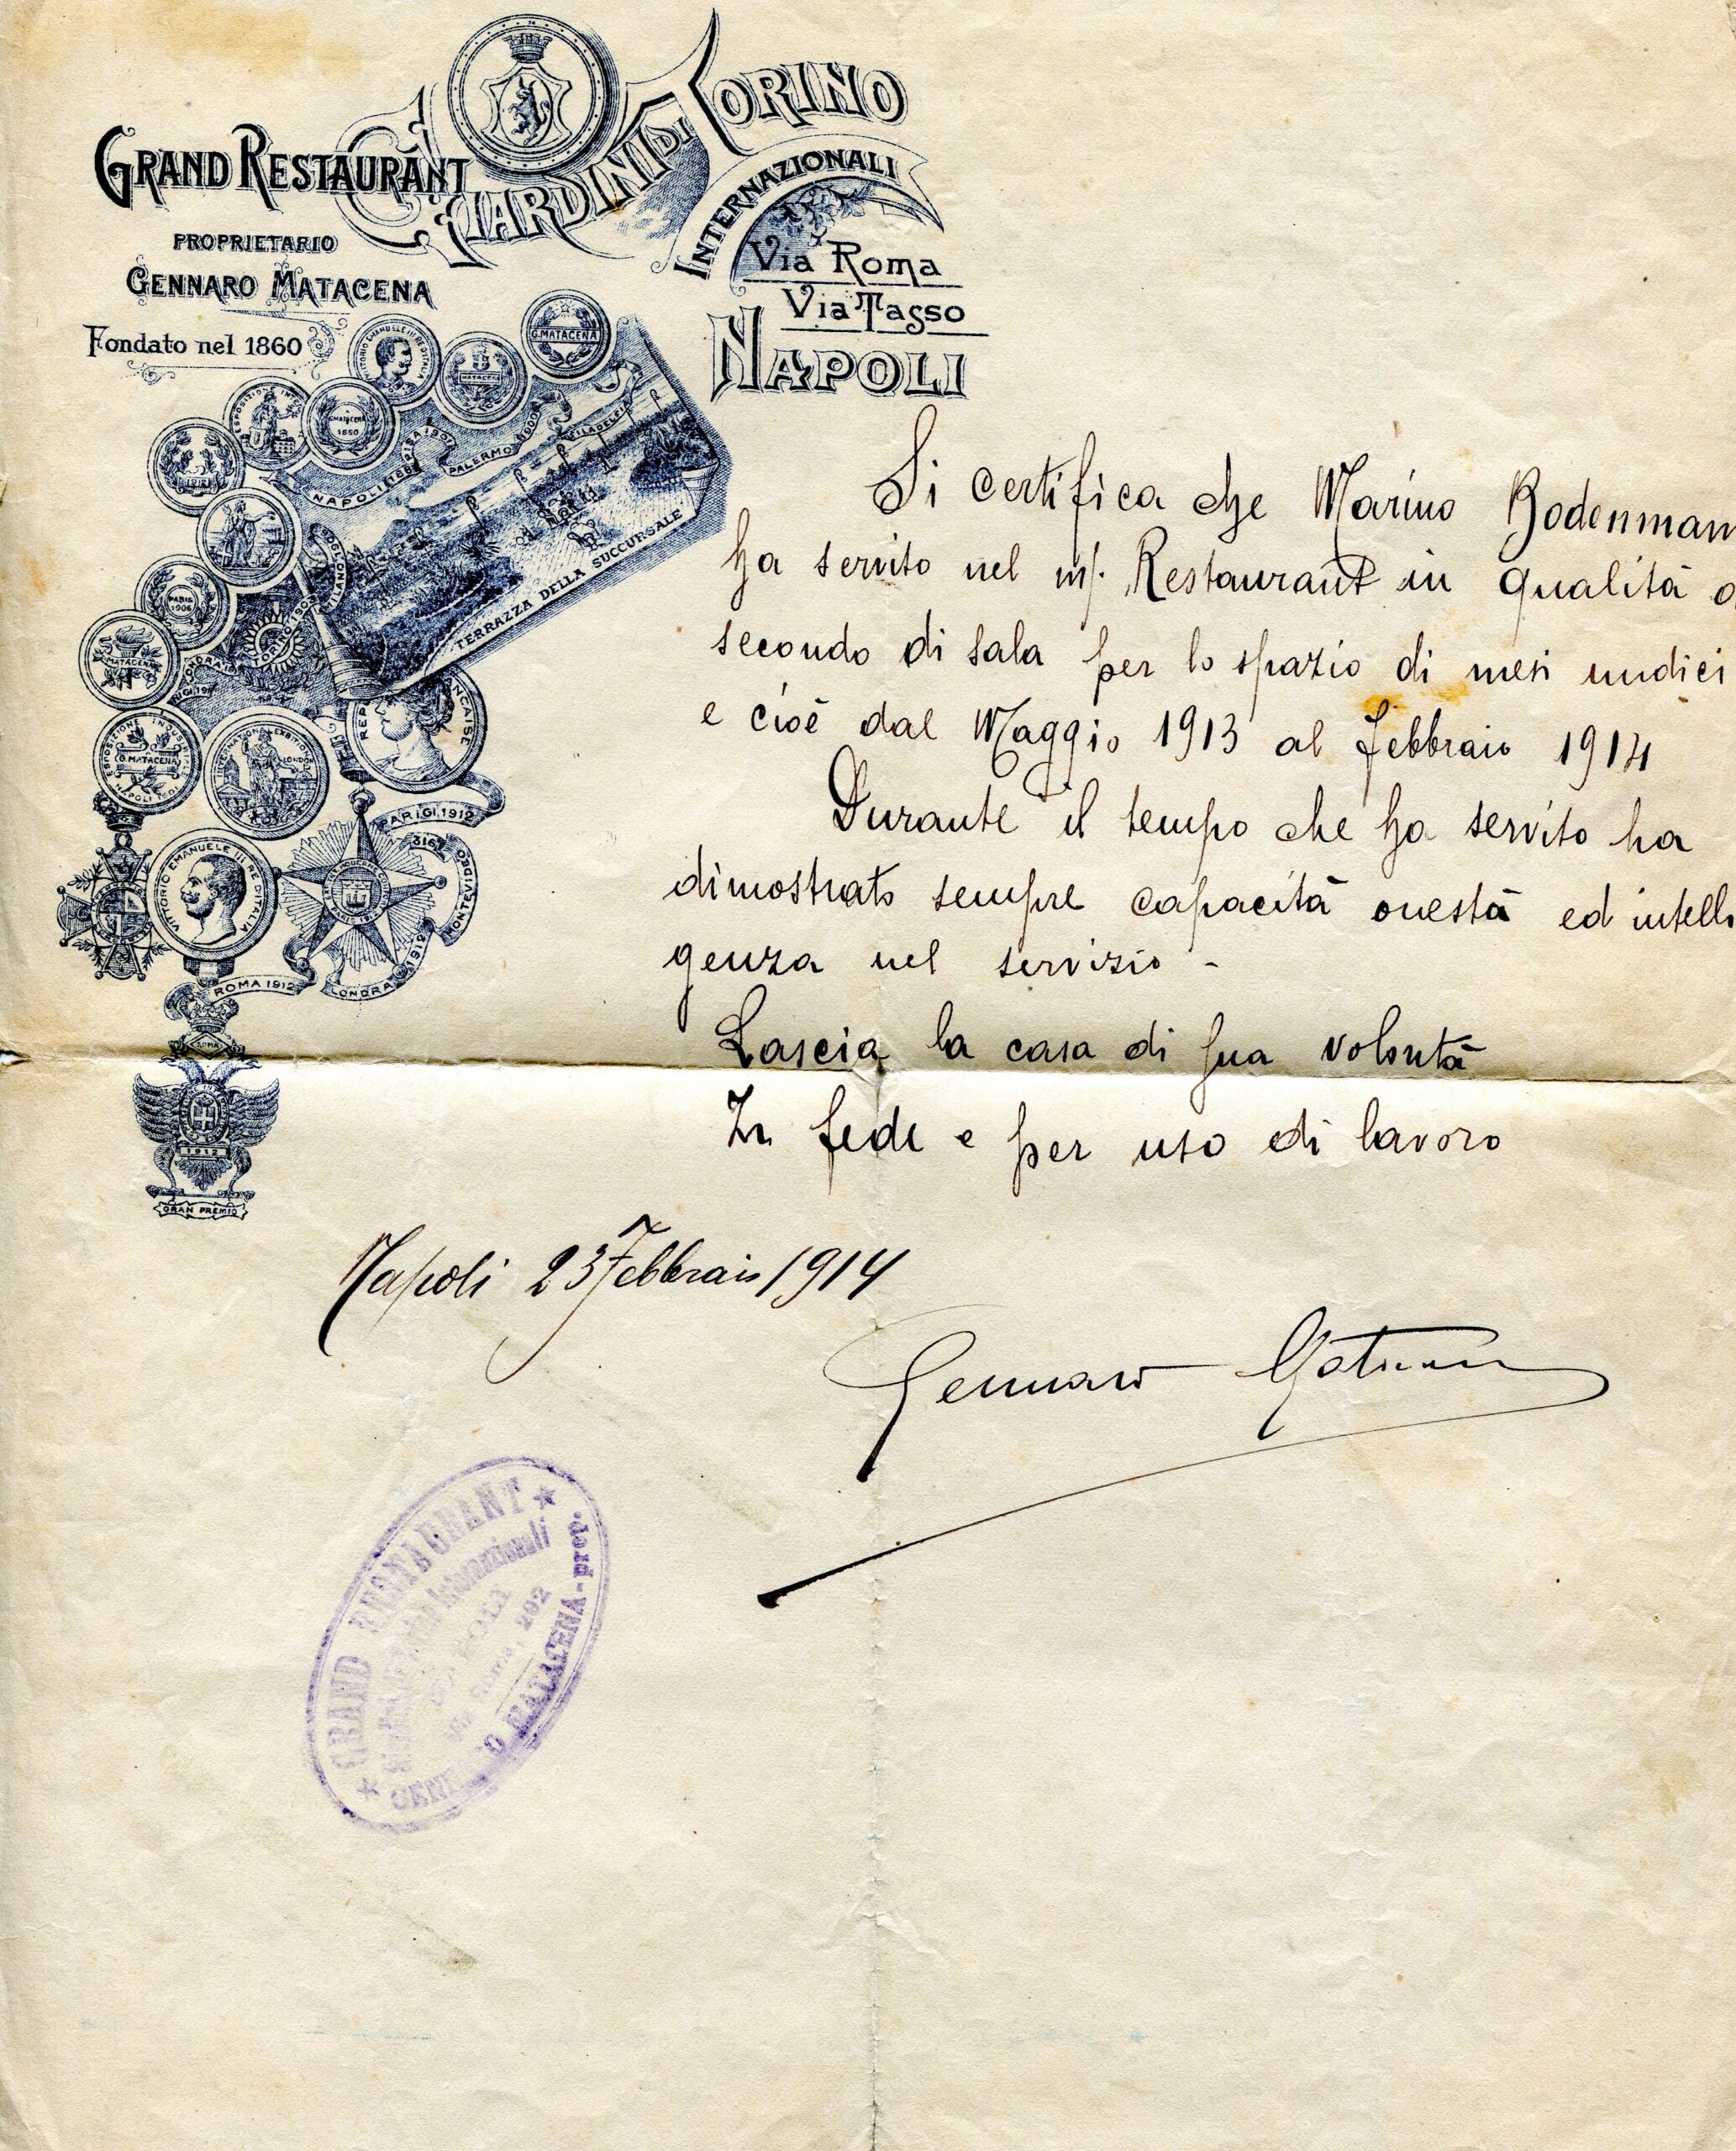 GRAND RESTAURANT
GIARDINI DI TORINO
INTERNAZIONALI
PROPRIETARIO
GENNARO MATACENA
Fondato nel 1860
Via Roma
Via Tasso
NAPOLI
G. MATACENA
MATACENA
NAPOLI
PISA 1901
PALERMO
FILADELFIA
MILANO
TORINO
PARIS 1906
MATACENA
TERRAZZA DELLA SUCCURSALE
ESPOSIZIONE INDUSTRIALE
G. MATACENA
NAPOLI 1901
INTERNATIONAL EXHIBITION
LONDON
PARIGI 1912
VITTORIO EMANUELE III RE D'ITALIA
MONTEVIDEO
LONDRA 1913
ROMA 1912
ROMA
1912
GRAN PREMIO
Si certifica che Marino Bodenman
ha servito nel m/. Restaurant in qualità
secondo di sala per lo spazio di mesi undici
e cioè dal Maggio 1913 al Febbraio 1914
Durante il tempo che ha servito ha
dimostrato sempre capacità onestà ed intelli
genza nel servizio -
Lascia la casa di sua volontà
In fede e per uso di lavoro
Napoli 23 Febbraio 1914
Gennaro Matacena
GRAND RESTAURANT
Internazionali
NAPOLI
Via Roma, 292
MATACENA-prop.